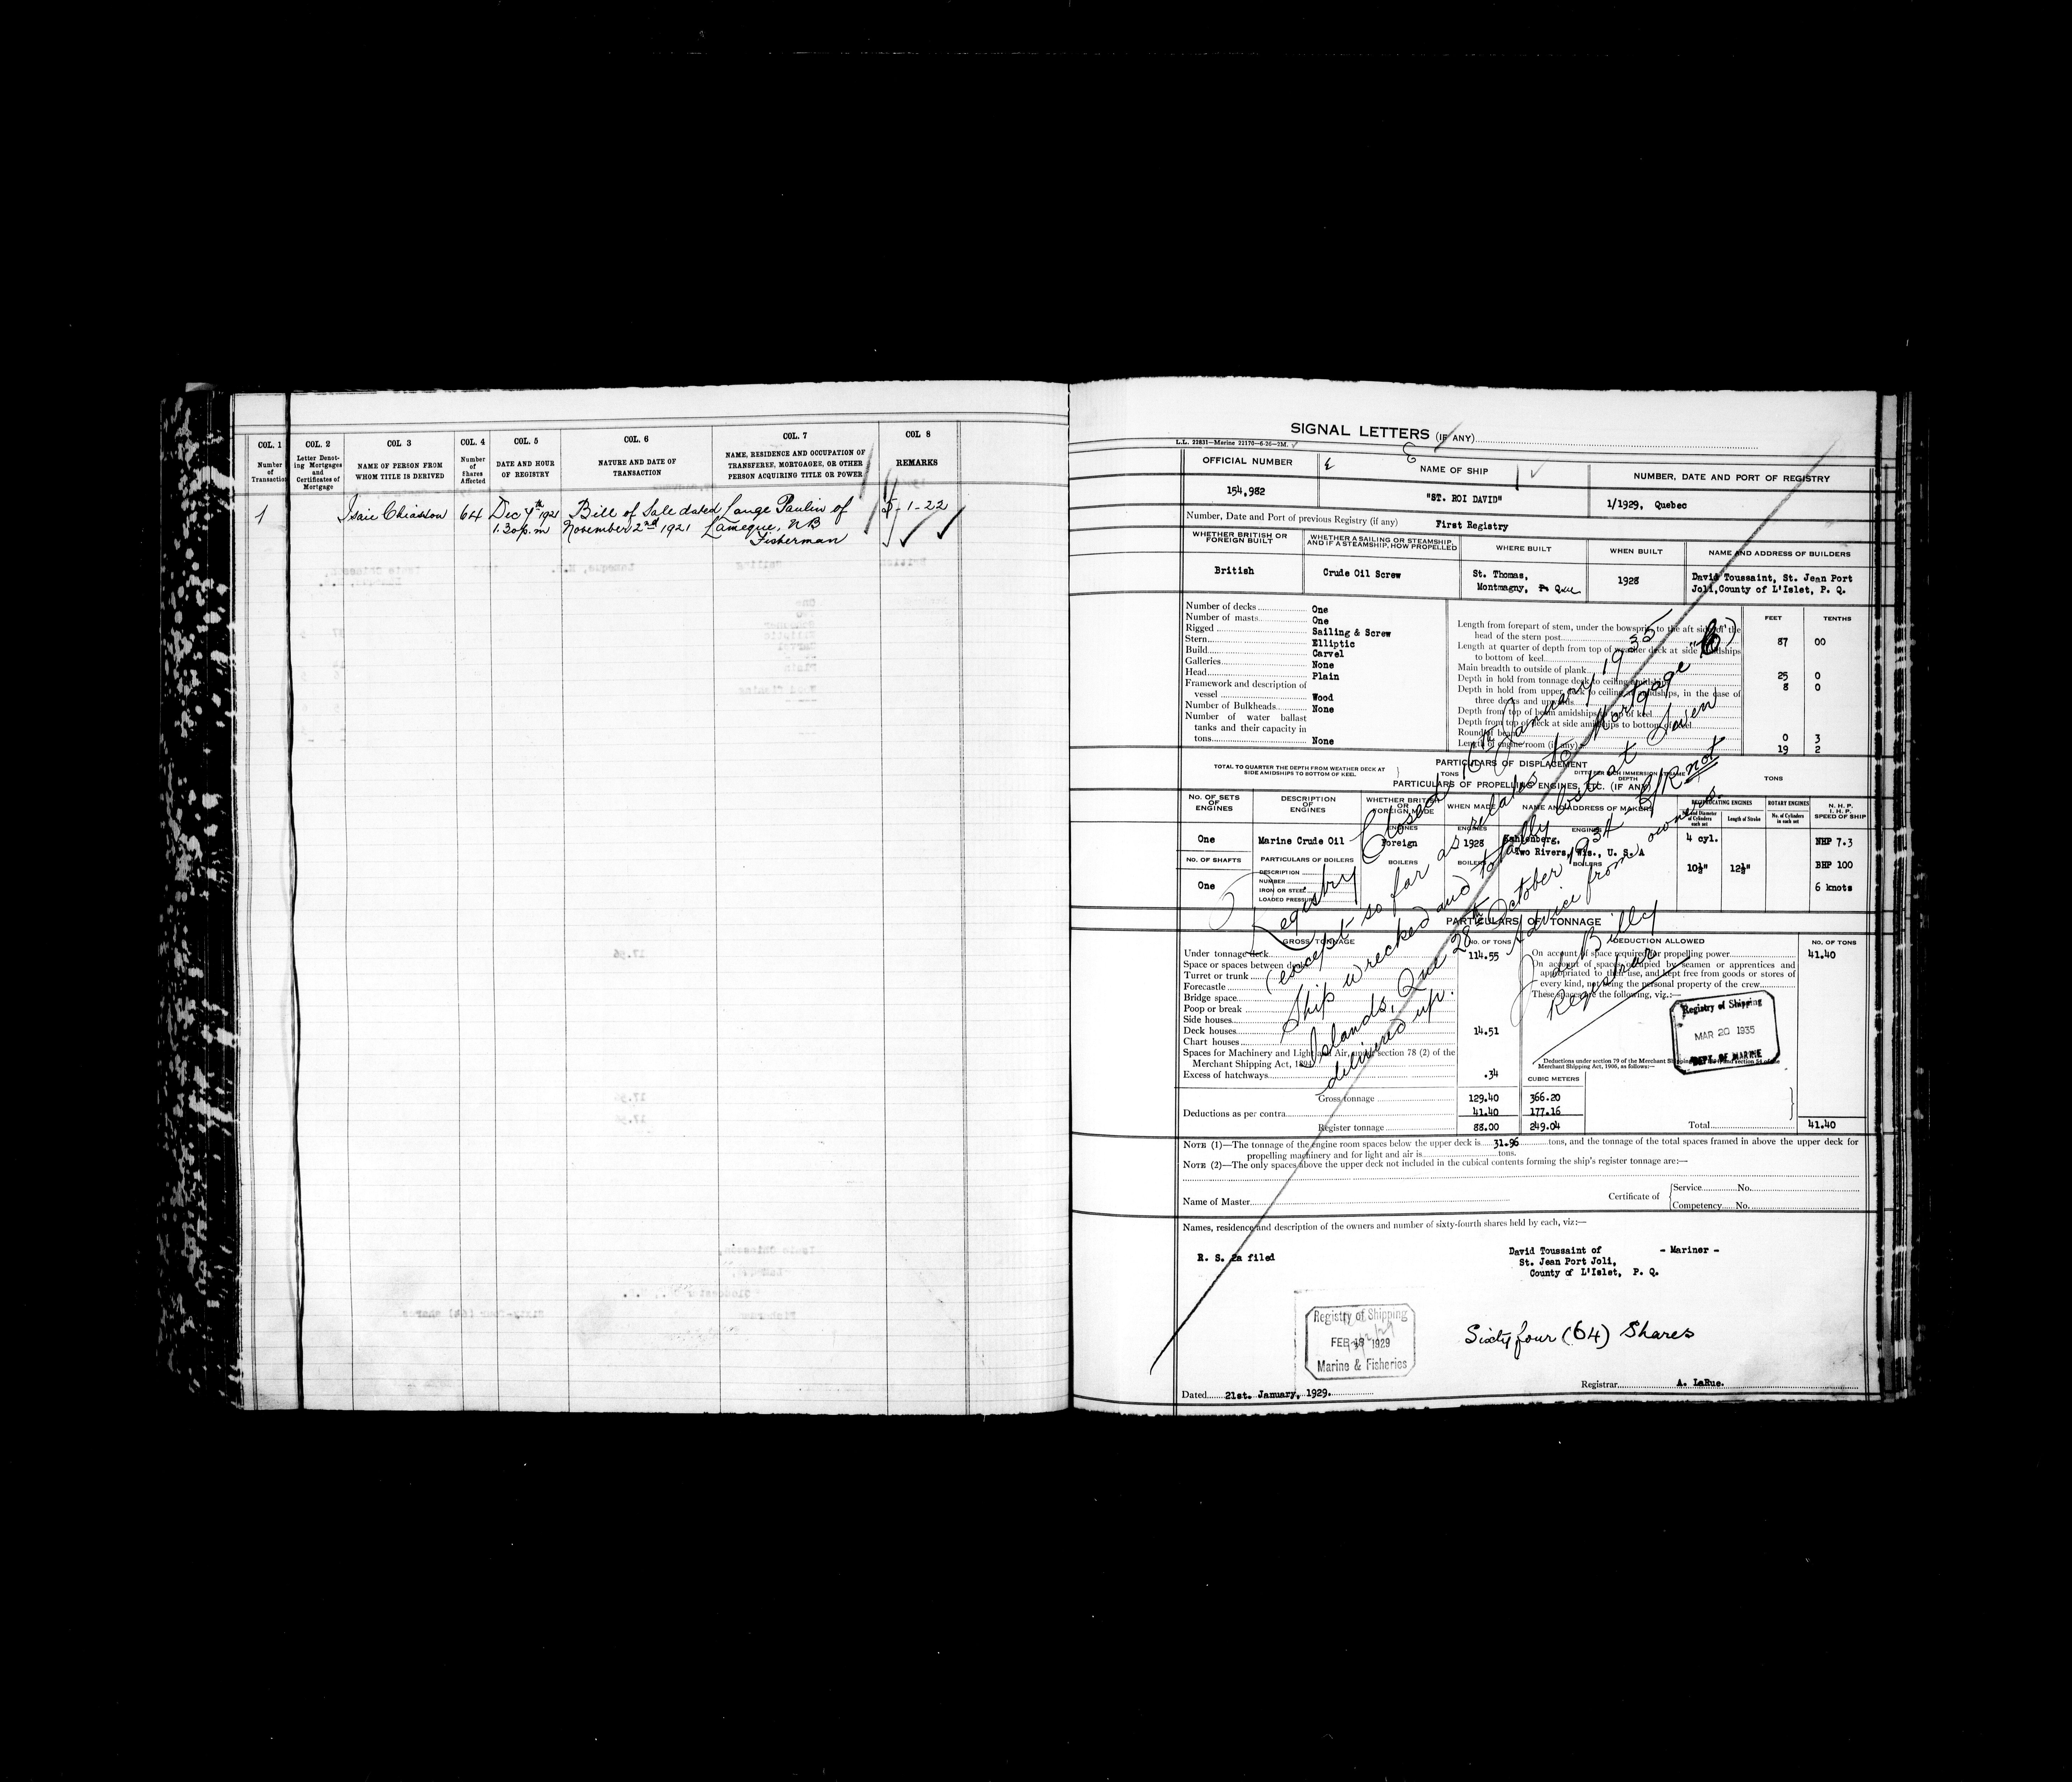 COL. 1
Number
of
Transaction
COL. 2
Letter Denot-
ing Mortgages
and
Certificates of
Mortgage
COL 3
NAME OF PERSON FROM
WHOM TITLE IS DERIVED
COL. 4
Number
of
Shares
Affected
COL. 5
DATE AND HOUR
OF REGISTRY
COL. 6
NATURE AND DATE OF
TRANSACTION
COL. 7
NAME, RESIDENCE AND OCCUPATION OF
TRANSFEREE, MORTGAGEE, OR OTHER
PERSON ACQUIRING TITLE OR POWER
COL 8
REMARKS
1 Isaie Chiasson 64 Dec 7th 1921 Bill of Sale dated Lange Paulin of 5-1-22
1.30 p.m November 2nd 1921 Lameque, NB
Fisherman
SIGNAL LETTERS (IF ANY)
L.L. 22831—Marine 22170—6-26—2M.
OFFICIAL NUMBER
NAME OF SHIP
NUMBER, DATE AND PORT OF REGISTRY
154,982
"ST. ROI DAVID"
1/1929, Quebec
Number, Date and Port of previous Registry (if any) First Registry
WHETHER BRITISH OR
FOREIGN BUILT
WHETHER A SAILING OR STEAMSHIP
AND IF A STEAMSHIP, HOW PROPELLED
WHERE BUILT
WHEN BUILT
NAME AND ADDRESS OF BUILDERS
British
Crude Oil Screw
St. Thomas,
Montmagny, Que
1928
David Toussaint, St. Jean Port
Joli, County of L'Islet, P. Q.
Number of decks One
Number of masts One
Rigged Sailing & Screw
Stern Elliptic
Build Carvel
Galleries None
Head Plain
Framework and description of
vessel Wood
Number of Bulkheads None
Number of water ballast
tanks and their capacity in
tons None
FEET TENTHS
Length from forepart of stem, under the bowsprit, to the aft side of the
head of the stern post 87 00
Length at quarter of depth from top of weather deck at side amidships
to bottom of keel
Main breadth to outside of plank 25 0
Depth in hold from tonnage deck to ceiling amidships 8 0
Depth in hold from upper deck to ceiling amidships, in the case of
three decks and upwards
Depth from top of beam amidships to top of keel
Depth from top of deck at side amidships to bottom of keel
Round of beam 0 3
Length of engine room (if any) 19 2
PARTICULARS OF DISPLACEMENT
TOTAL TO QUARTER THE DEPTH FROM WEATHER DECK AT
SIDE AMIDSHIPS TO BOTTOM OF KEEL
TONS
TONS
PARTICULARS OF PROPELLING ENGINES, ETC. (IF ANY)
NO. OF SETS
OF
ENGINES
DESCRIPTION
OF
ENGINES
WHETHER BRITISH
OR
FOREIGN MADE
WHEN MADE
NAME AND ADDRESS OF MAKERS
RECIPROCATING ENGINES
ROTARY ENGINES
No. and Diameter
of Cylinders
in each set
Length of Stroke
No. of Cylinders
in each set
N. H. P.
I. H. P.
SPEED OF SHIP
ENGINES
ENGINES
ENGINES
One
Marine Crude Oil
Foreign
1928
Kahlenberg,
Two Rivers, Wis., U. S. A
4 cyl.
NHP 7.3
NO. OF SHAFTS
PARTICULARS OF BOILERS
BOILERS
BOILERS
BOILERS
10½" 12½"
BHP 100
One
DESCRIPTION
NUMBER
IRON OR STEEL
LOADED PRESSURE
6 knots
PARTICULARS OF TONNAGE
GROSS TONNAGE
NO. OF TONS
DEDUCTION ALLOWED
NO. OF TONS
Under tonnage deck 114.55
Space or spaces between decks
Turret or trunk
Forecastle
Bridge space
Poop or break
Side houses
Deck houses 14.51
Chart houses
Spaces for Machinery and Light and Air, under section 78 (2) of the
Merchant Shipping Act, 1894
Excess of hatchways .34
On account of space required for propelling power 41.40
On account of spaces occupied by seamen or apprentices and
appropriated to their use, and kept free from goods or stores of
every kind, not being the personal property of the crew
These spaces are the following, viz.:—
Deductions under section 79 of the Merchant Shipping Act, 1894, and section 54 of the
Merchant Shipping Act, 1906, as follows:—
CUBIC METERS
Gross tonnage 129.40 366.20
Deductions as per contra 41.40 177.16
Register tonnage 88.00 249.04
Total 41.40
Registry Closed 16th January 1935
(except so far as relates to Mortgage "B")
Ship wrecked and totally lost at Seven
Islands, Que 28th October 1934 C/R not
delivered up. Advice from owners.
Billy
Registrar
Registry of Shipping
MAR 20 1935
DEPT. OF MARINE
NOTE (1)—The tonnage of the engine room spaces below the upper deck is 31.96 tons, and the tonnage of the total spaces framed in above the upper deck for
propelling machinery and for light and air is tons.
NOTE (2)—The only spaces above the upper deck not included in the cubical contents forming the ship's register tonnage are:—
Name of Master
Certificate of
Service No.
Competency No.
Names, residence and description of the owners and number of sixty-fourth shares held by each, viz:—
R. S. 2a filed
David Toussaint of - Mariner -
St. Jean Port Joli,
County of L'Islet, P. Q.
Sixty four (64) Shares
Registry of Shipping
FEB 18 1929
Marine & Fisheries
Dated 21st. January, 1929.
Registrar A. LaRue.